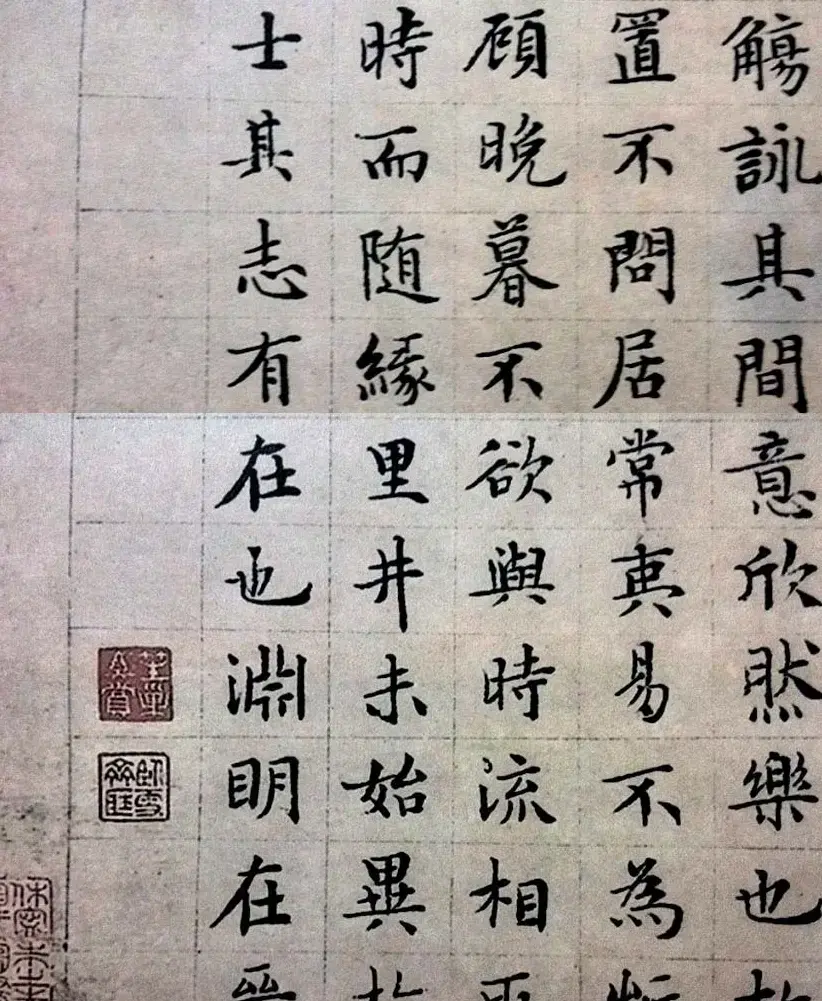 觴詠其間意欣然樂也
置不問居常易不為
顧晚暮不欲與時流相
時而随緣里井未始異
士其志有在也淵明在